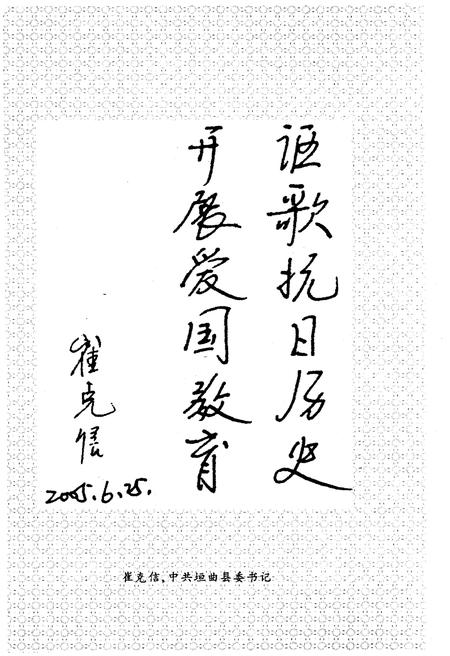 讴歌抗日历史
开展爱国教育
崔克信
2005.6.25.
崔克信,中共垣曲县委书记